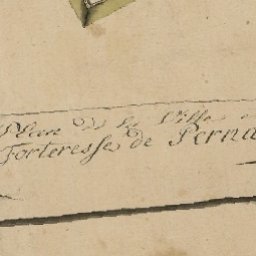 Plan de la Ville e
Forteresse de Perna